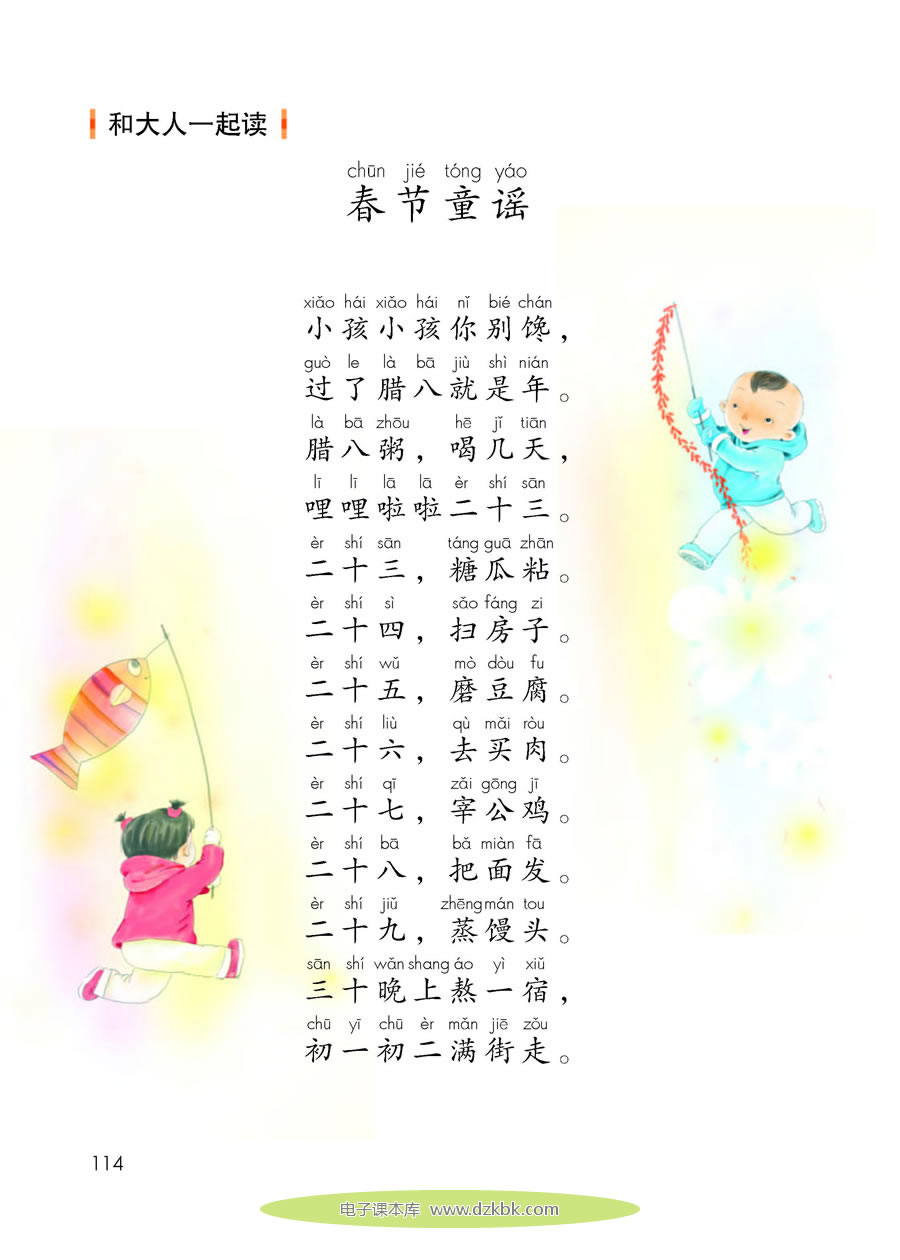 和大人一起读
chūn jié tóng yáo
春节童谣
xiǎo hái xiǎo hái nǐ bié chán
小孩小孩你别馋，
guò le là bā jiù shì nián
过了腊八就是年。
là bā zhōu hē jǐ tiān
腊八粥，喝几天，
lī lī lā lā èr shí sān
哩哩啦啦二十三。
èr shí sān táng guā zhān
二十三，糖瓜粘。
èr shí sì sǎo fáng zi
二十四，扫房子。
èr shí wǔ mò dòu fu
二十五，磨豆腐。
èr shí liù qù mǎi ròu
二十六，去买肉。
èr shí qī zǎi gōng jī
二十七，宰公鸡。
èr shí bā bǎ miàn fā
二十八，把面发。
èr shí jiǔ zhēng mán tou
二十九，蒸馒头。
sān shí wǎn shang áo yì xiǔ
三十晚上熬一宿，
chū yī chū èr mǎn jiē zǒu
初一初二满街走。
114
电子课本库 www.dzkbk.com